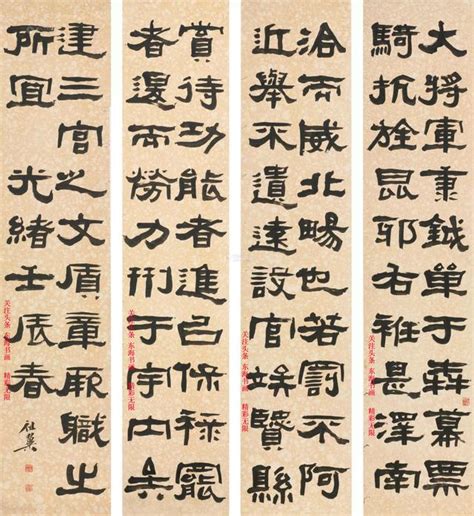 大將軍秉鉞單于犇幕票
騎抗旌昆邪右衽是澤南
洽而威北暢也若罰不阿
近舉不遺遠設官竢賢縣
賞待功能者進以保祿罷
者退而勞力刑于宇內矣
建三宮之文質章厥職之
所宜 光緒壬辰春
关注头条 东海书画 精彩无限
关注头条 东海书画 精彩无限
关注头条 东海书画 精彩无限
关注头条 东海书画 精彩无限